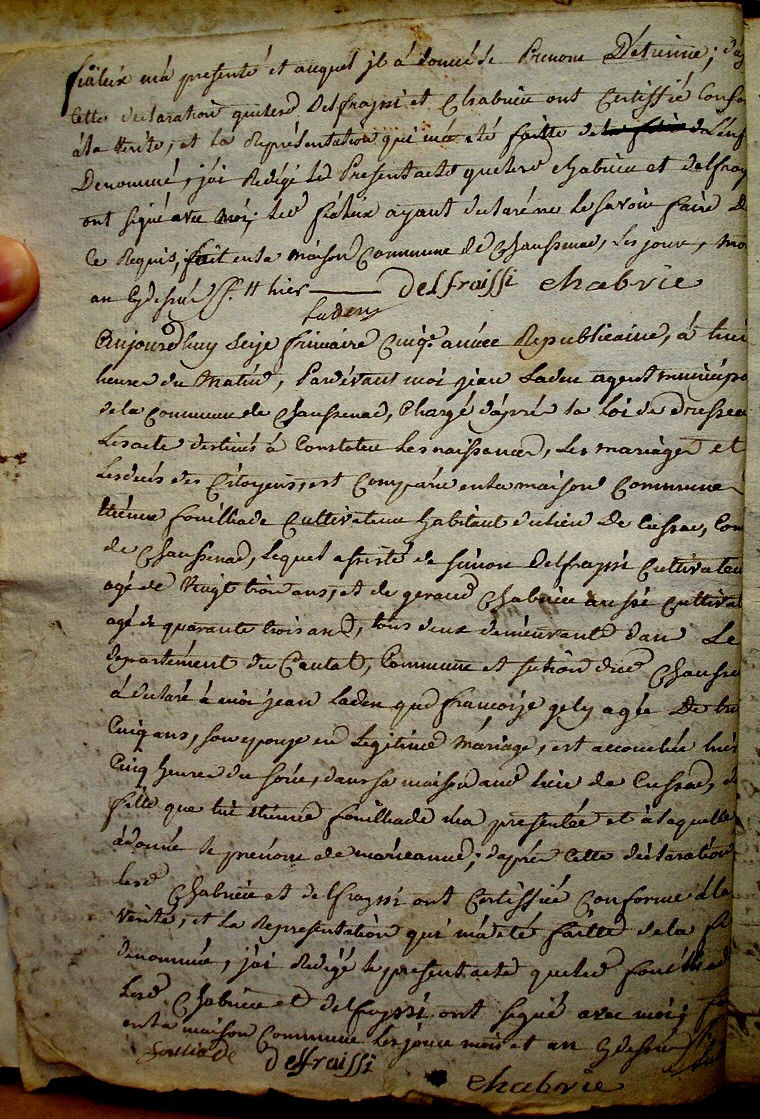 fialeix m'a présenté et auquel jl à donné le Prenom D'étienne; d'ap
Cette declaration que lesd Delfraissi et Chabrieu ont Certiffié Confo
à la Verité, et la Représentation qui m'a été faitte de la fille de L'enf
Denommé, j'ai Redigé le Present acte que lesd Chabrieu et delfray
ont signé avec moi; led fialeix ayant declaré ne le savoir faire De
Ce Requis, fait en la maison Commune de Chaussenac, les jour, mo
an Cydessus
delfraissi chabrie
Laden
Aujourdhuy seize frimaire Cinq.e année Republicaine, à huit
heures du matin, Pardevant moi jean Laden agent municipa
de la Commune de Chaussenac, Chargé d'après la Loi de dresser
Les acte destinés à Constater les naissances, les mariages et
Les decés des Citoyens, est Comparu en la maison Commune
étienne fouilhade Cultivateur habitant du lieu De Cussac, Com
de Chaussenac, lequel assisté de simon delfrayssi Cultivateu
agé de vingt trois ans, et de geraud Chabrieu aussi Cultivat
agé de quarante trois ans, tous deux demeurant dans Le
departement du Cantal, Commune et section dud Chausse
à declaré à moi jean Laden que francoise gely agée De tre
Cinq ans, son epouse en Legitime mariage, est accouchée hier
Cinq heures du soir, dans sa maison aud lieu de Cussac, d
fille que lui étienne fouilhade m'a presentée et à laquelle
à donné le prenom de marieanne; d'après Cette déclaration
lesd Chabrieu et delfrayssi ont Certiffié Conforme à la
verité, et La Representation qui m'a eté faitte de la fi
denommée, j'ai Redigé le present acte que led fouilhad
Lesd Chabrieu et delfrayssi ont signé avec moi; fa
en la maison Commune les jour mois et an Cydessus
fouliade delfraissi
chabrie